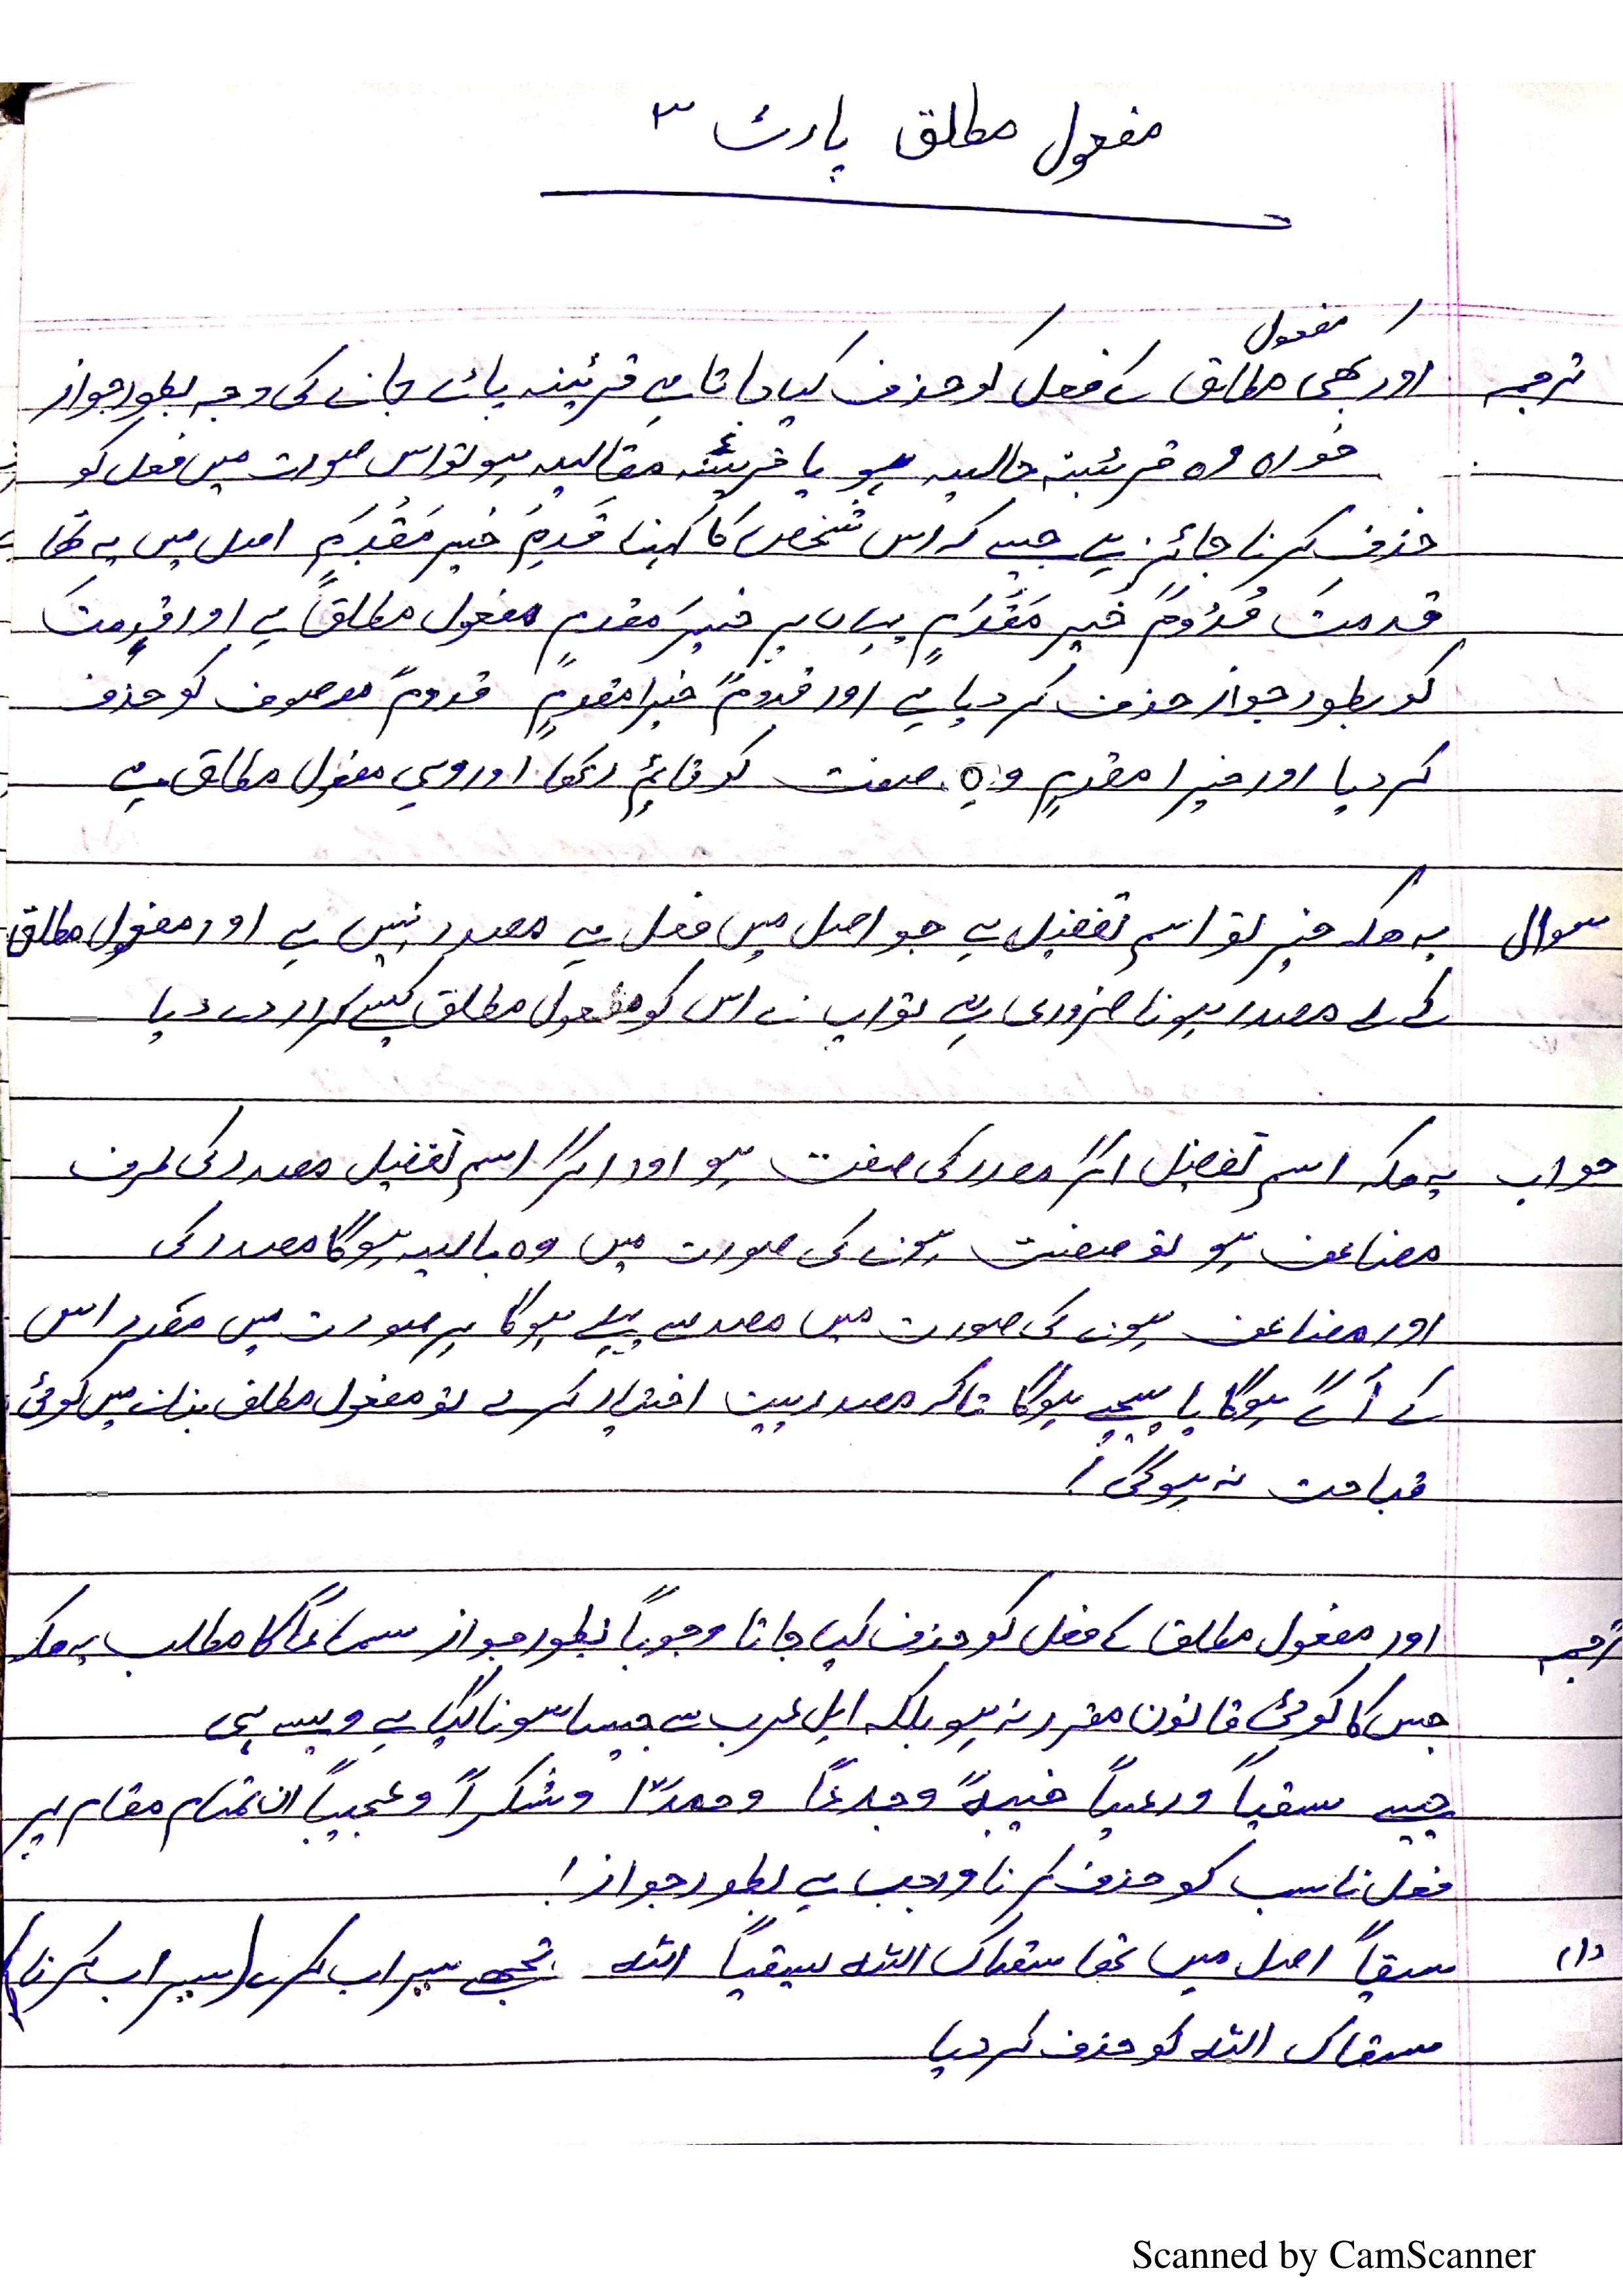 مفعول مطلق پارٹ ٣
ترجمہ اور کبھی مفعول مطلق کے فعل کو حذف کیا جاتا ہے قرئینہ پائے جانے کی وجہ بطور جواز
خواہ وہ قرئینہ حالیہ ہو یا قرئینہ مقالیہ ہو تو اس صورت میں فعل کو
حذف کرنا جائز ہے جیسے کہ اس شخص کا کہنا قَدِمَ خَیر مَقْدَمٍ اصل میں یہ تھا
قدمتَ قُدُوْمً خَیر مَقْدَمٍ یہاں پر خیرَ مقدمٍ مفعول مطلقاً ہے اور قدِمتَ
کو بطور جواز حذف کر دیا ہے اور قدومً خیرا مقدمٍ قدومً موصوف کو حذف
کر دیا اور خیرا مقدمٍ وہ صفت کو قائم رکھا اور وہی مفعول مطلق ہے
سوال یہ ھیکہ خیر تو اسم تفضیل ہے جو اصل میں فعل ہے مصدر نہیں ہے اور مفعول مطلق
کے لے مصدر ہونا ضروری ہے تو اپ نے اس کو مفعول مطلق کیسے قرار دے دیا
جواب یہ ھیکہ اسم تفضیل اگر مصدر کی صفت ہو اور اگر اسم تفضیل مصدر کی طرف
مضاعف ہو تو صفت ہونے کی صورت میں وہ ہوگا مصدر کی
اور مضاعف ہونے کی صورت میں مصد سے پہلے ہوگا ہر صورت میں مقدر اس
کے آگے ہوگا یا پیچھے ہوگا تاکہ مصدر ییت اختیار کرے تو مفعول مطلق بنانے میں کوئ
قباحت نہ ہوگی!
ترجمہ اور مفعول مطلق کے فعل کو حذف کیا جاتا وجوباً بطور جواز سماعاً کا مطلب یہ ھیکہ
جس کا کوئ قانون مقرر نہ ہو بلکہ اہل عرب سے جیسا سونا گیا ہے ویسے ہی
جیسے سقیاً ورعیاً خیبۃً وجدعاً وحمدًا وشکراً وعجبیاً ان تمام مقام پر
فعل ناسب کو حذف کرنا واجب ہے بطور جواز!
(١) سقیاً اصل میں تھا سقاک اللہ سقیاً اللہ تجھے سیراب کرے (سیراب کرنا)
سقاک اللہ کو حذف کر دیا
Scanned by CamScanner